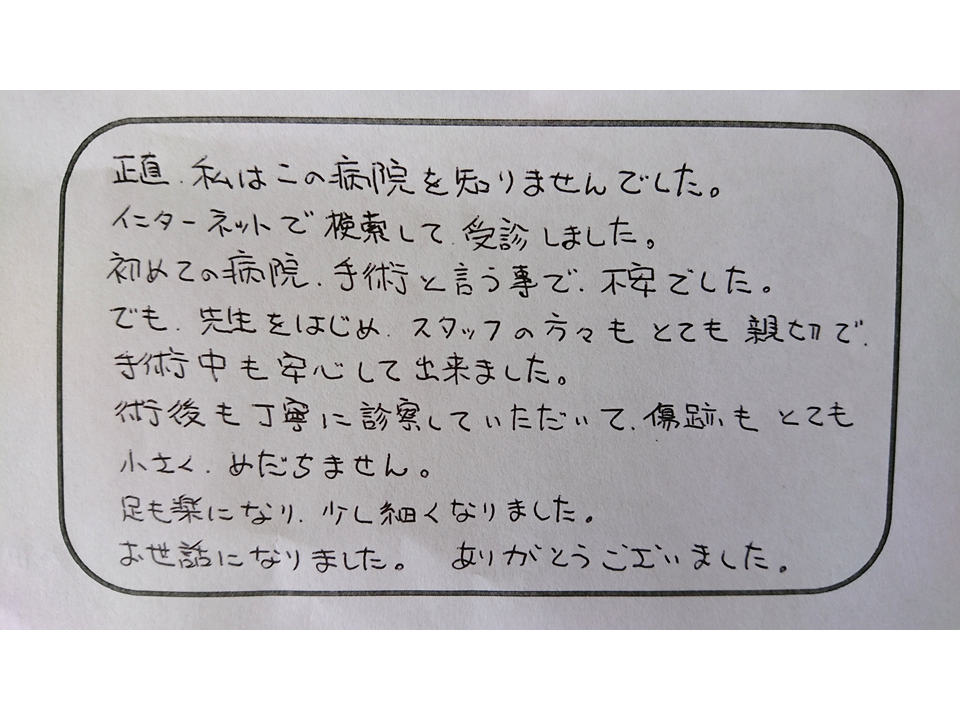 正直、私はこの病院を知りませんでした。
インターネットで検索して、受診しました。
初めての病院、手術と言う事で、不安でした。
でも、先生をはじめ、スタッフの方々もとても親切で、
手術中も安心して出来ました。
術後も丁寧に診察していただいて、傷跡もとても
小さく、めだちません。
足も楽になり、少し細くなりました。
お世話になりました。 ありがとうございました。